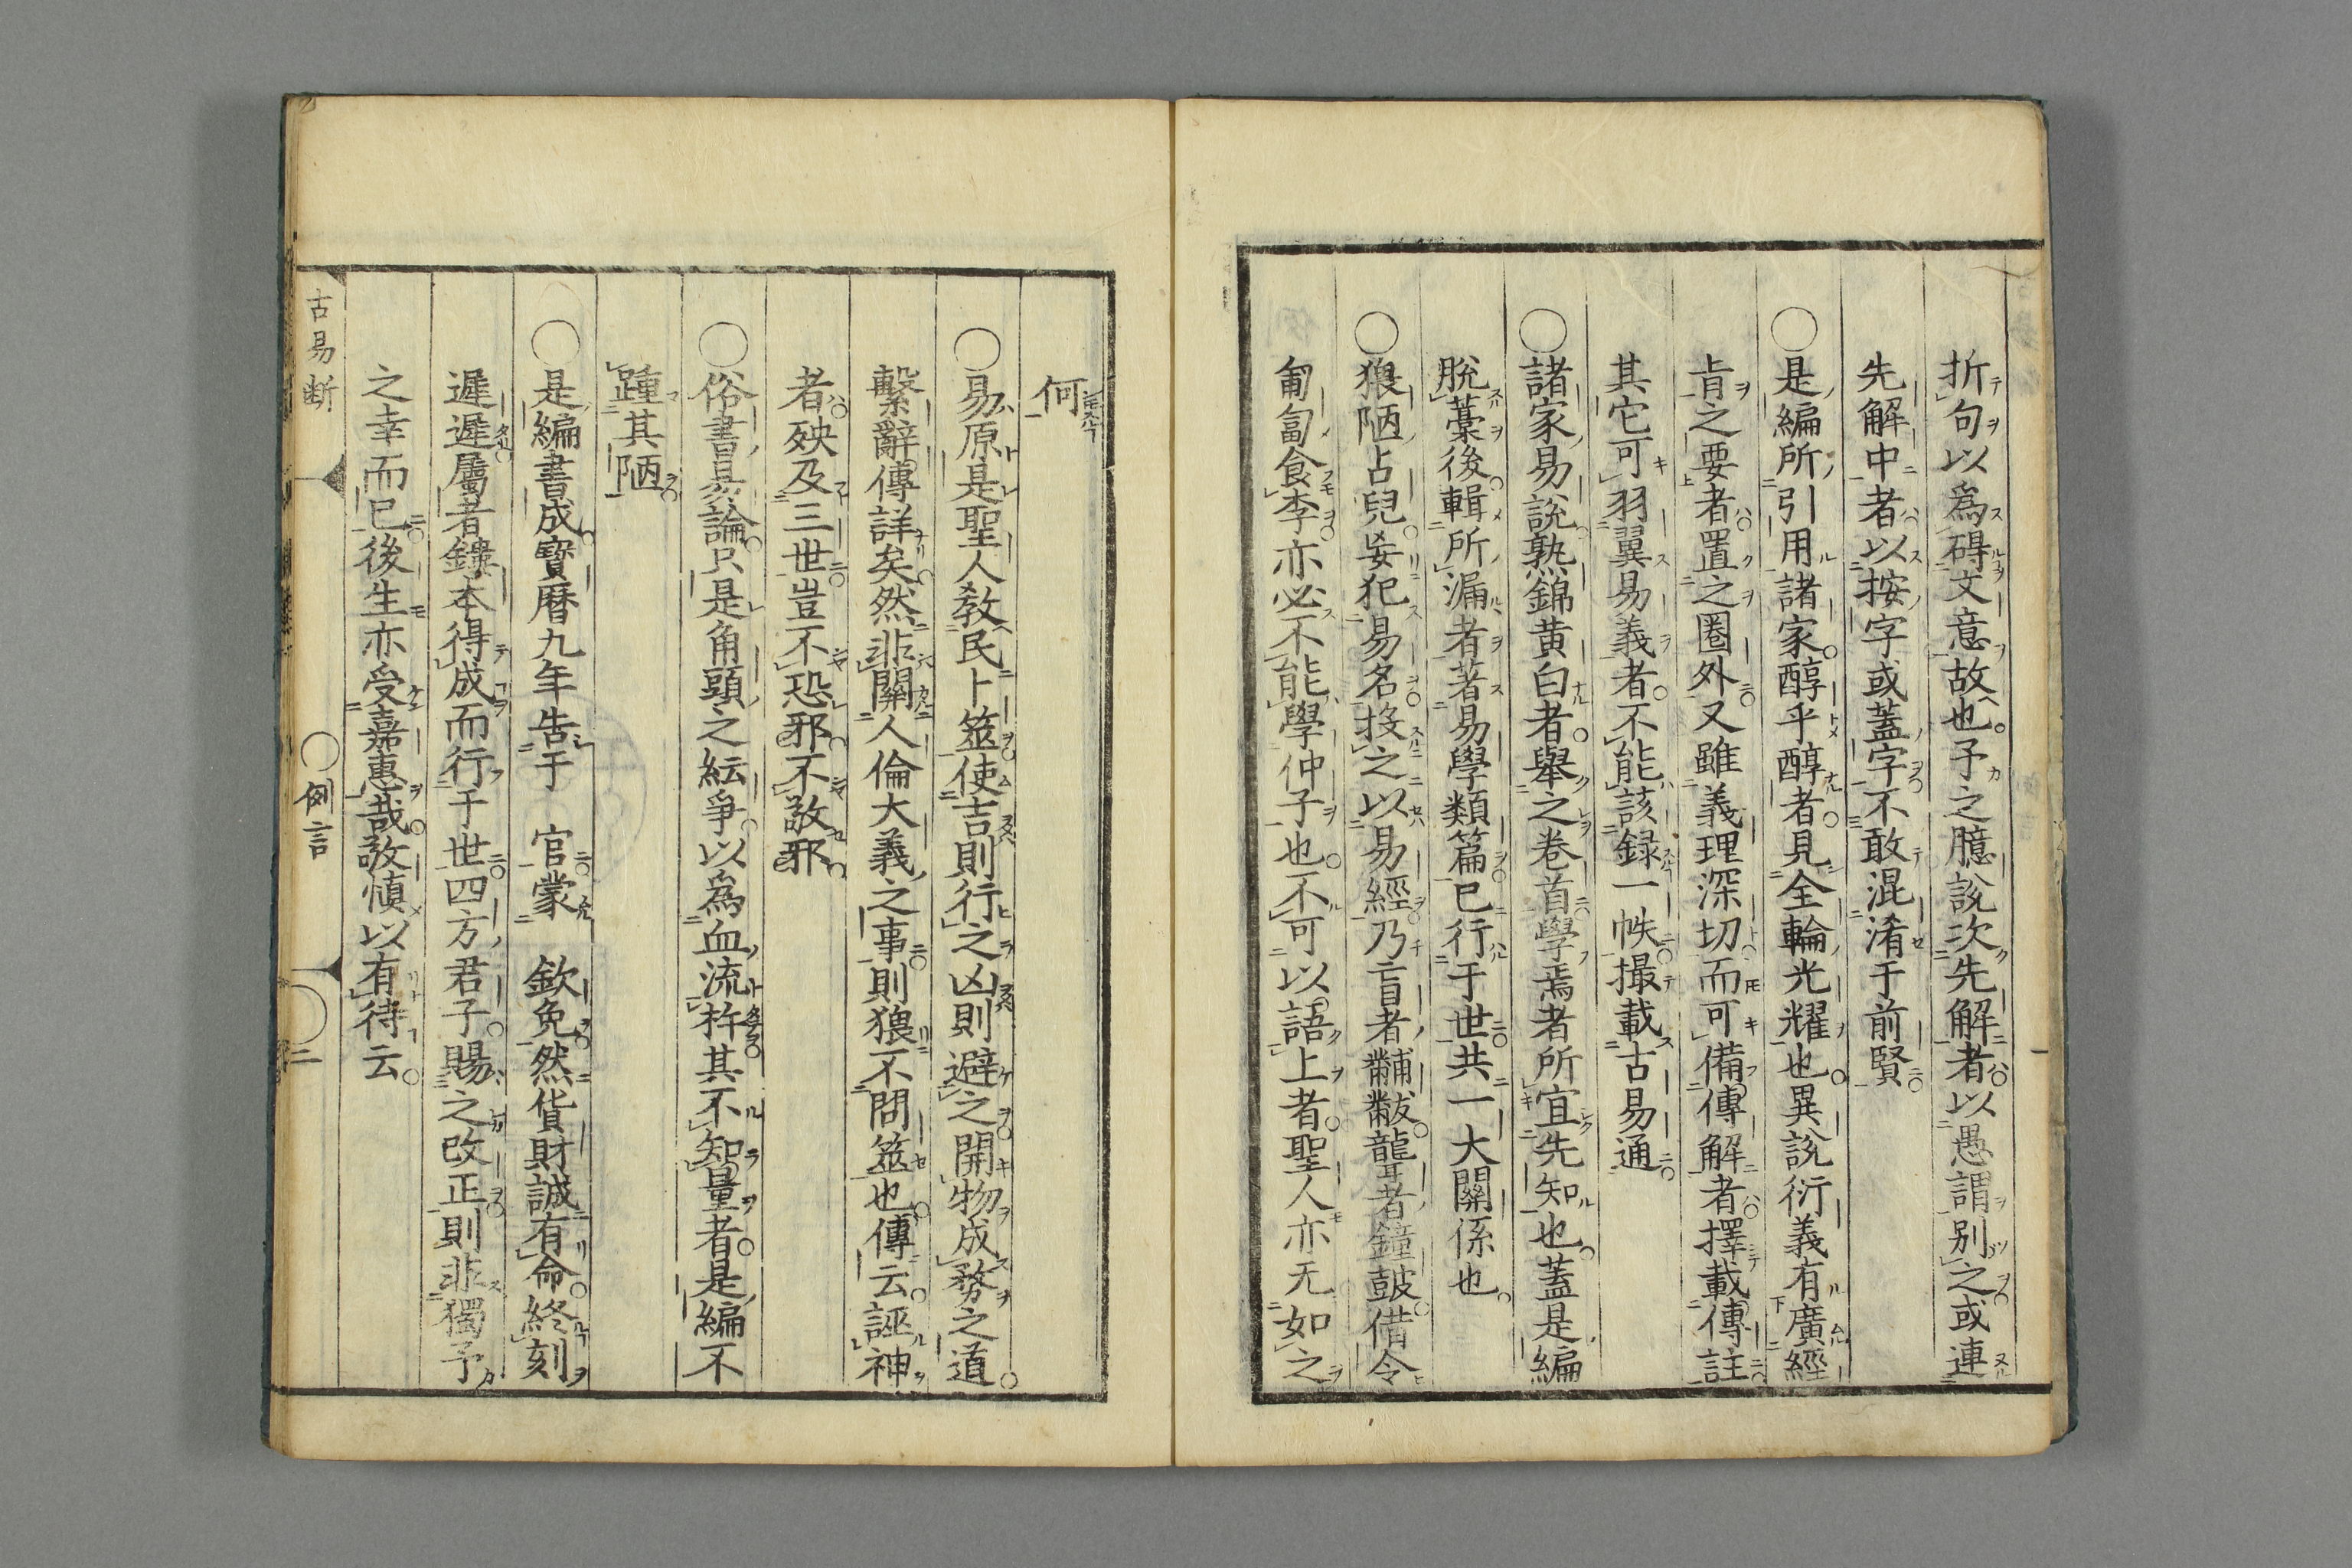 折句以爲碍文意故也予之臆說次先解者以愚謂別之或連
先解中者以按字或蓋字不敢混淆于前賢
○是編所引用諸家醇乎醇者見全輪光耀也異說衍義有廣經
肯之要者置之圈外又雖義理深切而可備傳解者擇載傳註
其它可羽翼易義者不能該録一帙撮載古易通
○諸家易說熟錦黄白者舉之卷首學焉者所宜先知也蓋是編
脫藁後輯所漏者著易學類篇已行于世共一大關係也
○猥陋占兒妄犯易名投之以易經乃盲者黼黻龍聾者鐘鼓借令
匍匐食李亦必不能學仲子也不可以語上者聖人亦无如之
何
○易原是聖人教民卜筮使吉則行之凶則避之開物成務之道
繫辭傳詳矣然非關人倫大義之事則猥不問筮也傳云誣神
者殃及三世豈不恐邪不敬邪
○俗書易論只是角頭之紜爭以爲血流杵其不知量者是編不
踵其陋
○是編書成寶曆九年告于　官蒙　欽免然貨財誠有命終刻
遲遲屬者鏤本得成而行于世四方君子賜之改正則非獨予
之幸而已後生亦受嘉惠哉敬慎以有待云
古易断
○例言
二